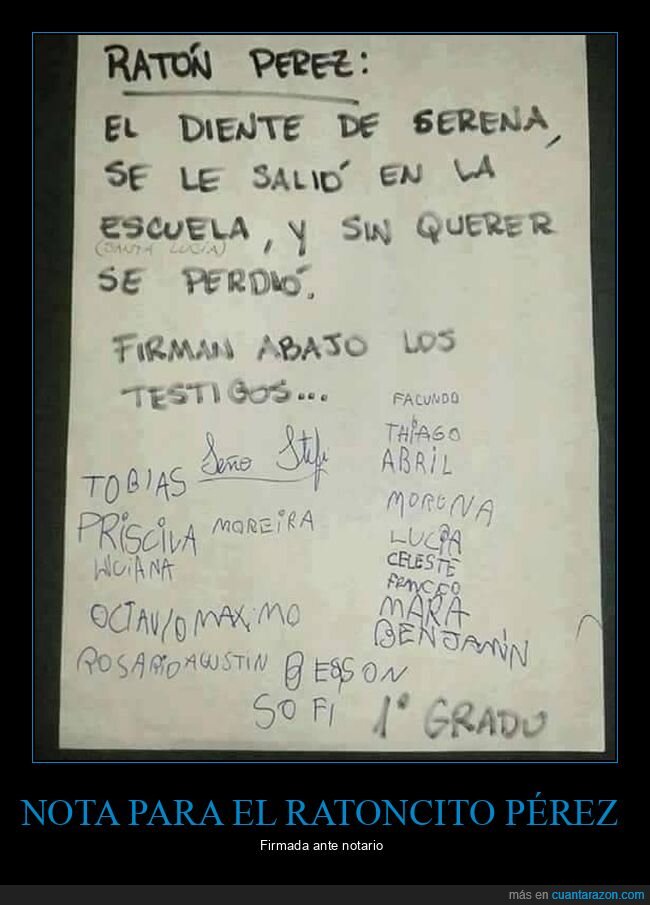 RATÓN PEREZ:
EL DIENTE DE SERENA,
SE LE SALIÓ EN LA
ESCUELA, Y SIN QUERER
(SANTA LUCÍA)
SE PERDIÓ.
FIRMAN ABAJO LOS
TESTIGOS...
FACUNDO
THIAGO
ABRIL
Seño Stefi
TOBIAS
MORENA
PRISCILA MOREIRA
LUCIA
LUCIANA
CELESTE
FRANCCO
MARA
OCTAVIO MAXIMO
BENJAMIN
ROSARIO AGUSTIN
SOFI
1° GRADO
NOTA PARA EL RATONCITO PÉREZ
Firmada ante notario
más en cuantarazon.com